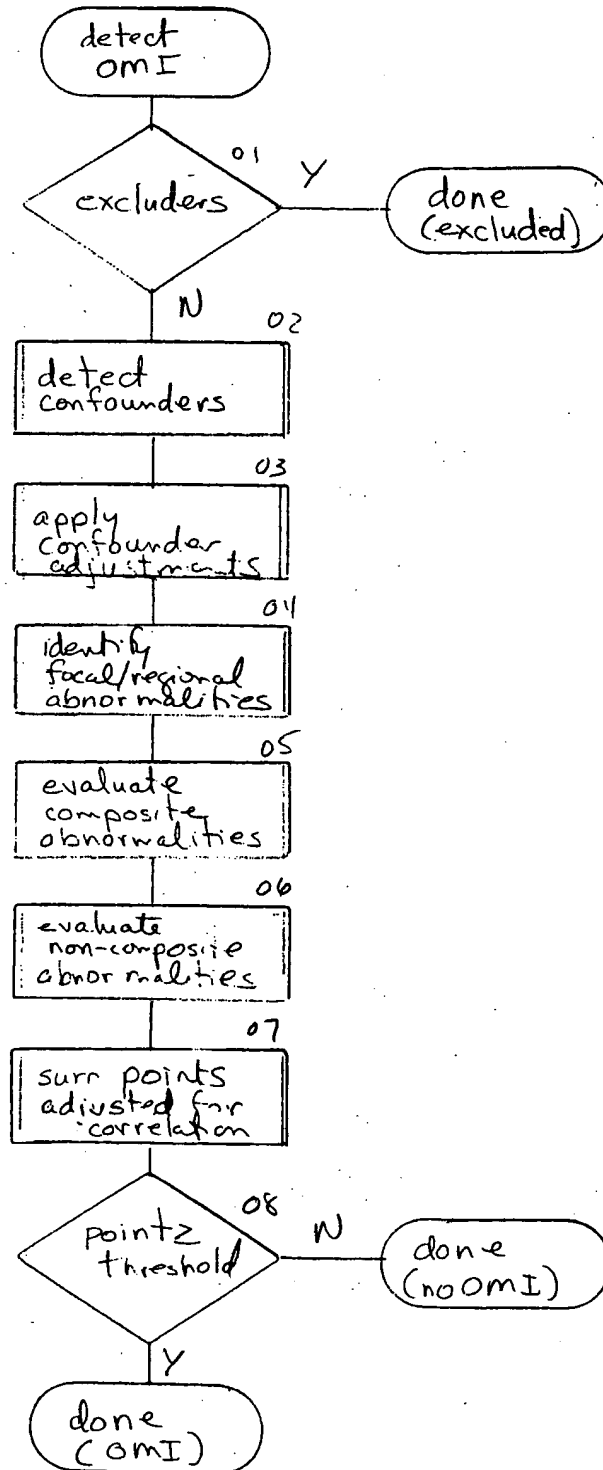 detect
OMI
01
excluders
Y
done
(excluded)
N
02
detect
confounders
03
apply
confounder
adjustments
04
identify
focal/regional
abnormalities
05
evaluate
composite
abnormalities
06
evaluate
non-composite
abnormalities
07
points
adjusted for
correlation
08
point≥
threshold
N
done
(no OMI)
Y
done
(OMI)